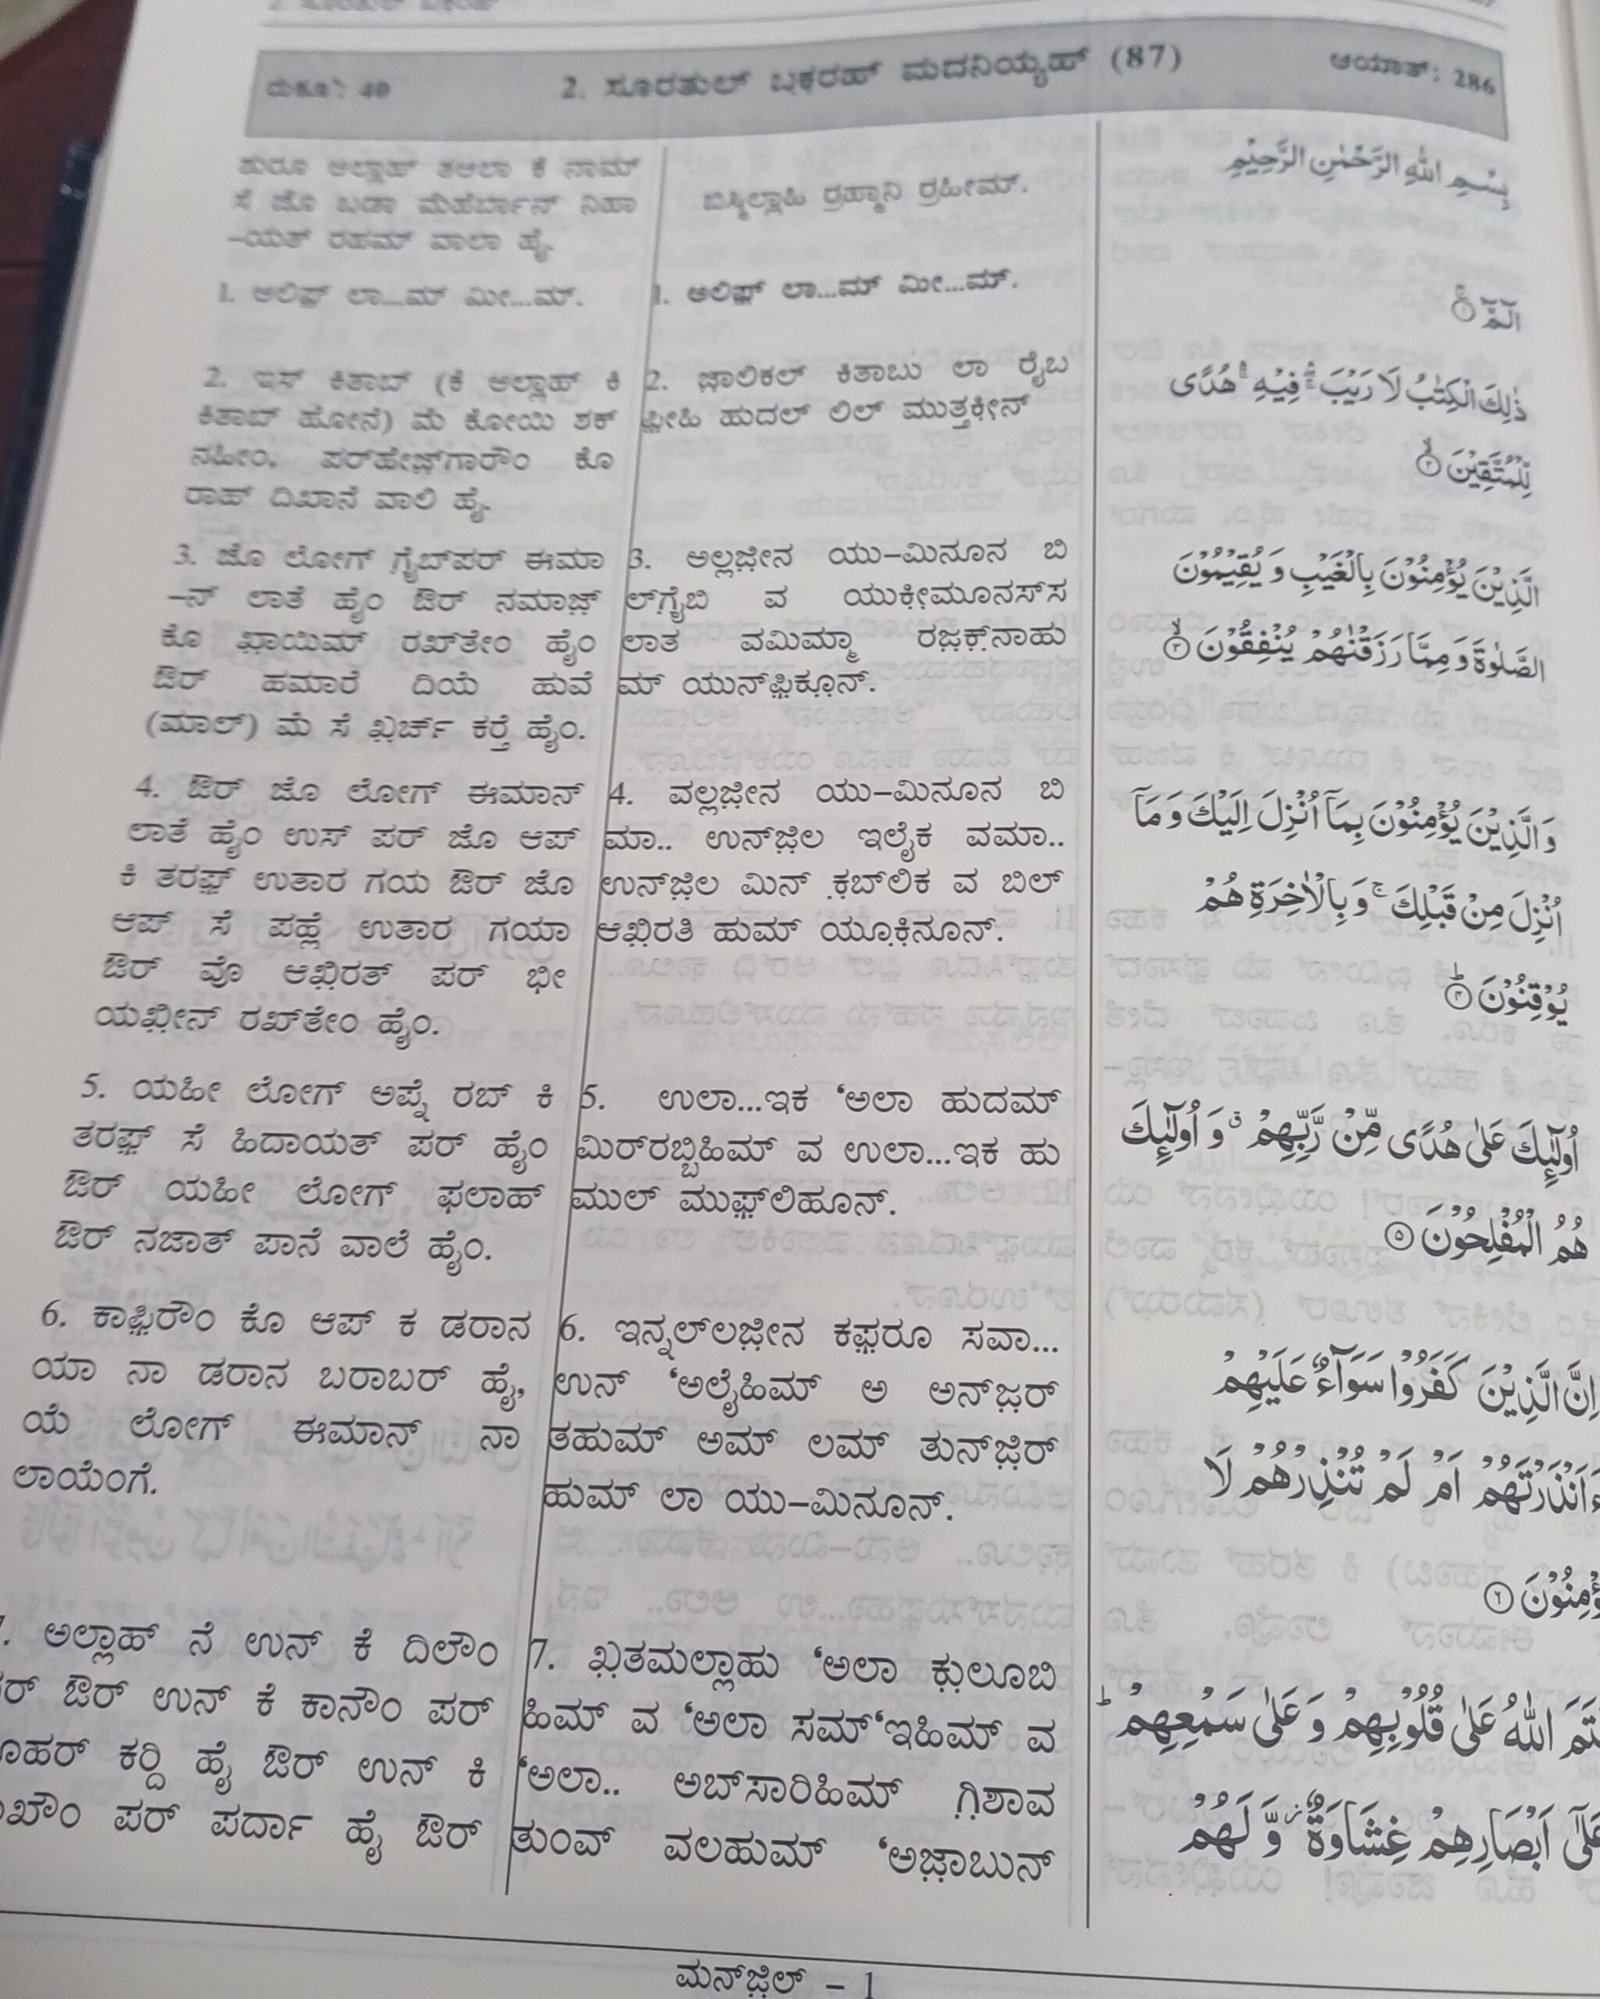 2. ಸೂರತುಲ್ ಬಕ಼ರಹ್
ರುಕೂ': 40
2. ಸೂರತುಲ್ ಬಕ಼ರಹ್ ಮದನಿಯ್ಯಹ್ (87)
ಆಯಾತ್: 286
ಶುರೂ ಅಲ್ಲಾಹ್ ತಆಲಾ ಕೆ ನಾಮ್
ಸೆ ಜೊ ಬಡಾ ಮೆಹೆರ್ಬಾನ್ ನಿಹಾ
–ಯತ್ ರಹಮ್ ವಾಲಾ ಹೈ.
1. ಅಲಿಫ಼್ ಲಾ...ಮ್ ಮೀ...ಮ್.
2. ಇಸ್ ಕಿತಾಬ್ (ಕೆ ಅಲ್ಲಾಹ್ ಕಿ
ಕಿತಾಬ್ ಹೋನೆ) ಮೆ ಕೋಯಿ ಶಕ್
ನಹೀಂ, ಪರ್‌ಹೇಜ಼್‌ಗಾರೌಂ ಕೊ
ರಾಹ್ ದಿಖಾನೆ ವಾಲಿ ಹೈ.
3. ಜೊ ಲೋಗ್ ಗ಼ೈಬ್‌ಪರ್ ಈಮಾ
–ನ್ ಲಾತೆ ಹೈಂ ಔರ್ ನಮಾಜ಼್
ಕೊ ಖ಼ಾಯಿಮ್ ರಖ್‌ತೇಂ ಹೈಂ
ಔರ್ ಹಮಾರೆ ದಿಯೆ ಹುವೆ
(ಮಾಲ್) ಮೆ ಸೆ ಖ಼ರ್ಚ್ ಕರ್‍ತೆ ಹೈಂ.
4. ಔರ್ ಜೊ ಲೋಗ್ ಈಮಾನ್
ಲಾತೆ ಹೈಂ ಉಸ್ ಪರ್ ಜೊ ಆಪ್
ಕಿ ತರಫ಼್ ಉತಾರ ಗಯ ಔರ್ ಜೊ
ಆಪ್ ಸೆ ಪಹ್ಲೆ ಉತಾರ ಗಯಾ
ಔರ್ ವೊ ಆಖ಼ಿರತ್ ಪರ್ ಭೀ
ಯಖ಼ೀನ್ ರಖ್‌ತೇಂ ಹೈಂ.
5. ಯಹೀ ಲೋಗ್ ಅಪ್ನೆ ರಬ್ ಕಿ
ತರಫ಼್ ಸೆ ಹಿದಾಯತ್ ಪರ್ ಹೈಂ
ಔರ್ ಯಹೀ ಲೋಗ್ ಫಲಾಹ್
ಔರ್ ನಜಾತ್ ಪಾನೆ ವಾಲೆ ಹೈಂ.
6. ಕಾಫ಼ಿರೌಂ ಕೊ ಆಪ್ ಕ ಡರಾನ
ಯಾ ನಾ ಡರಾನ ಬರಾಬರ್ ಹೈ,
ಯೆ ಲೋಗ್ ಈಮಾನ್ ನಾ
ಲಾಯೆಂಗೆ.
7. ಅಲ್ಲಾಹ್ ನೆ ಉನ್ ಕೆ ದಿಲೌಂ
ಔರ್ ಉನ್ ಕೆ ಕಾನೌಂ ಪರ್
ಕರ್‍ದಿ ಹೈ ಔರ್ ಉನ್ ಕಿ
ಪರ್ ಪರ್ದಾ ಹೈ ಔರ್
ಬಿಸ್ಮಿಲ್ಲಾಹಿ ರ್‍ರಹ್ಮಾನಿ ರ್‍ರಹೀಮ್.
1. ಅಲಿಫ಼್ ಲಾ...ಮ್ ಮೀ...ಮ್.
2. ಜ಼ಾಲಿಕಲ್ ಕಿತಾಬು ಲಾ ರೈಬ
ಫ಼ೀಹಿ ಹುದಲ್ ಲಿಲ್ ಮುತ್ತಕ಼ೀನ್
3. ಅಲ್ಲಜ಼ೀನ ಯು–ಮಿನೂನ ಬಿ
ಲ್‌ಗ಼ೈಬಿ ವ ಯುಕ಼ೀಮೂನಸ್‌ಸ
ಲಾತ ವಮಿಮ್ಮಾ ರಜ಼ಕ಼್‌ನಾಹು
ಮ್ ಯುನ್‌ಫ಼ಿಕ಼ೂನ್.
4. ವಲ್ಲಜ಼ೀನ ಯು–ಮಿನೂನ ಬಿ
ಮಾ.. ಉನ್‌ಜ಼ಿಲ ಇಲೈಕ ವಮಾ..
ಉನ್‌ಜ಼ಿಲ ಮಿನ್ ಕ಼ಬ್‌ಲಿಕ ವ ಬಿಲ್
ಆಖ಼ಿರತಿ ಹುಮ್ ಯೂಕ಼ಿನೂನ್.
5. ಉಲಾ...ಇಕ ‘ಅಲಾ ಹುದಮ್
ಮಿರ್‌ರಬ್ಬಿಹಿಮ್ ವ ಉಲಾ...ಇಕ ಹು
ಮುಲ್ ಮುಫ಼್‌ಲಿಹೂನ್.
6. ಇನ್ನಲ್‌ಲಜ಼ೀನ ಕಫ಼ರೂ ಸವಾ...
ಉನ್ ‘ಅಲೈಹಿಮ್ ಅ ಅನ್‌ಜ಼ರ್
ತಹುಮ್ ಅಮ್ ಲಮ್ ತುನ್‌ಜ಼ಿರ್
ಹುಮ್ ಲಾ ಯು–ಮಿನೂನ್.
7. ಖ಼ತಮಲ್ಲಾಹು ‘ಅಲಾ ಕ಼ುಲೂಬಿ
ಹಿಮ್ ವ ‘ಅಲಾ ಸಮ್‘ಇಹಿಮ್ ವ
‘ಅಲಾ.. ಅಬ್‌ಸಾರಿಹಿಮ್ ಗ಼ಿಶಾವ
ತುಂವ್ ವಲಹುಮ್ ‘ಅಜ಼ಾಬುನ್
بِسْمِ اللّٰهِ الرَّحْمٰنِ الرَّحِيْمِ
الٓمّٓ ۚ۝۱
ذٰلِكَ الْكِتٰبُ لَا رَيْبَ ۛۚ فِيْهِ ۛۚ هُدًى
لِّلْمُتَّقِيْنَ ۙ۝۲
الَّذِيْنَ يُؤْمِنُوْنَ بِالْغَيْبِ وَ يُقِيْمُوْنَ
الصَّلٰوةَ وَ مِمَّا رَزَقْنٰهُمْ يُنْفِقُوْنَ ۙ۝۳
وَ الَّذِيْنَ يُؤْمِنُوْنَ بِمَاۤ اُنْزِلَ اِلَيْكَ وَ مَاۤ
اُنْزِلَ مِنْ قَبْلِكَ ۚ وَ بِالْاٰخِرَةِ هُمْ
يُوْقِنُوْنَ ؕ۝۴
اُولٰٓىِٕكَ عَلٰى هُدًى مِّنْ رَّبِّهِمْ ۗ وَ اُولٰٓىِٕكَ
هُمُ الْمُفْلِحُوْنَ ۝۵
اِنَّ الَّذِيْنَ كَفَرُوْا سَوَآءٌ عَلَيْهِمْ
ءَاَنْذَرْتَهُمْ اَمْ لَمْ تُنْذِرْهُمْ لَا
يُؤْمِنُوْنَ ۝۶
خَتَمَ اللّٰهُ عَلٰى قُلُوْبِهِمْ وَ عَلٰى سَمْعِهِمْ ؕ
عَلٰۤى اَبْصَارِهِمْ غِشَاوَةٌ ؗ وَّ لَهُمْ
ಮನ್‌ಜ಼ಿಲ್ – 1